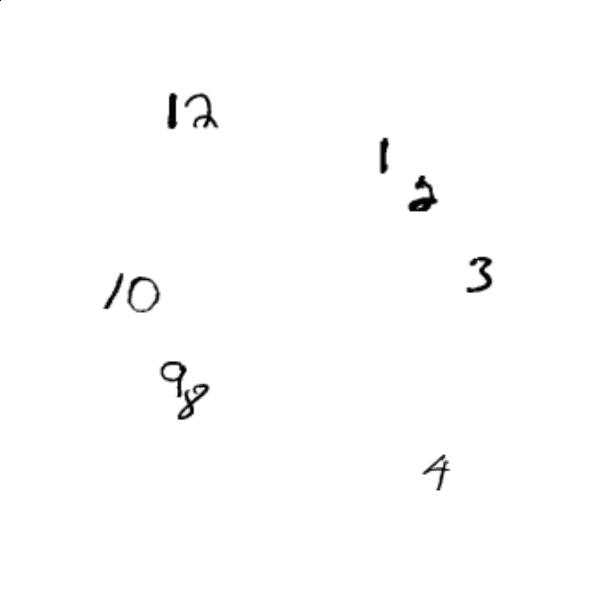 12
1
2
3
10
9
8
4